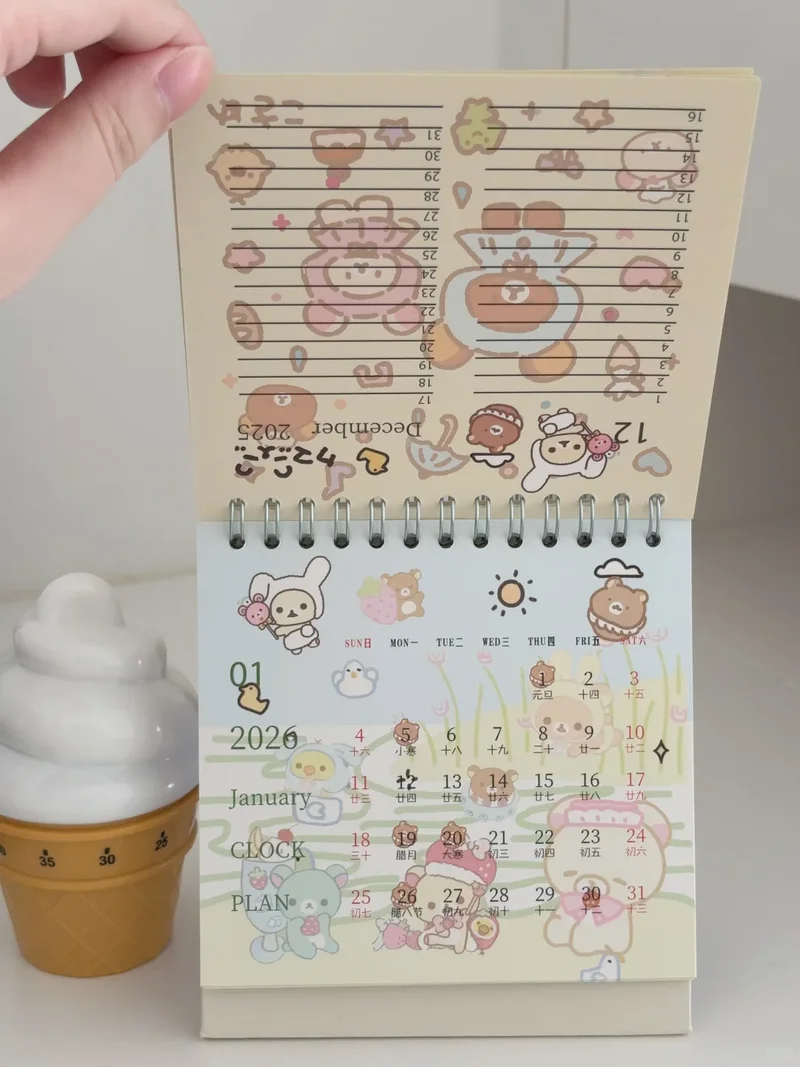 12
December 2025
1 17
2 18
3 19
4 20
5 21
6 22
7 23
8 24
9 25
10 26
11 27
12 28
13 29
14 30
15 31
16
SUN日 MON一 TUE二 WED三 THU四 FRI五 SAT六
01 1 2 3
元旦 十四 十五
2026 4 5 6 7 8 9 10
十六 小寒 十八 十九 二十 廿一 廿二
January 11 12 13 14 15 16 17
廿三 廿四 廿五 廿六 廿七 廿八 廿九
CLOCK 18 19 20 21 22 23 24
三十 腊月 大寒 初三 初四 初五 初六
PLAN 25 26 27 28 29 30 31
初七 腊八节 初九 初十 十一 十二 十三
35 30 25